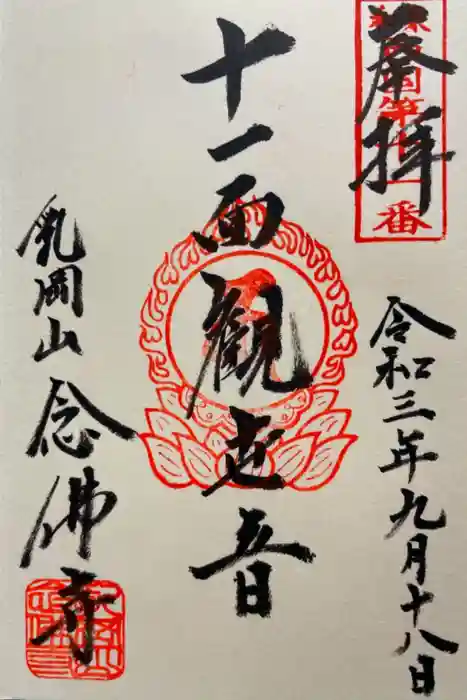 奉拝
令和三年九月十八日
十一面観世音
乳岡山 念佛寺